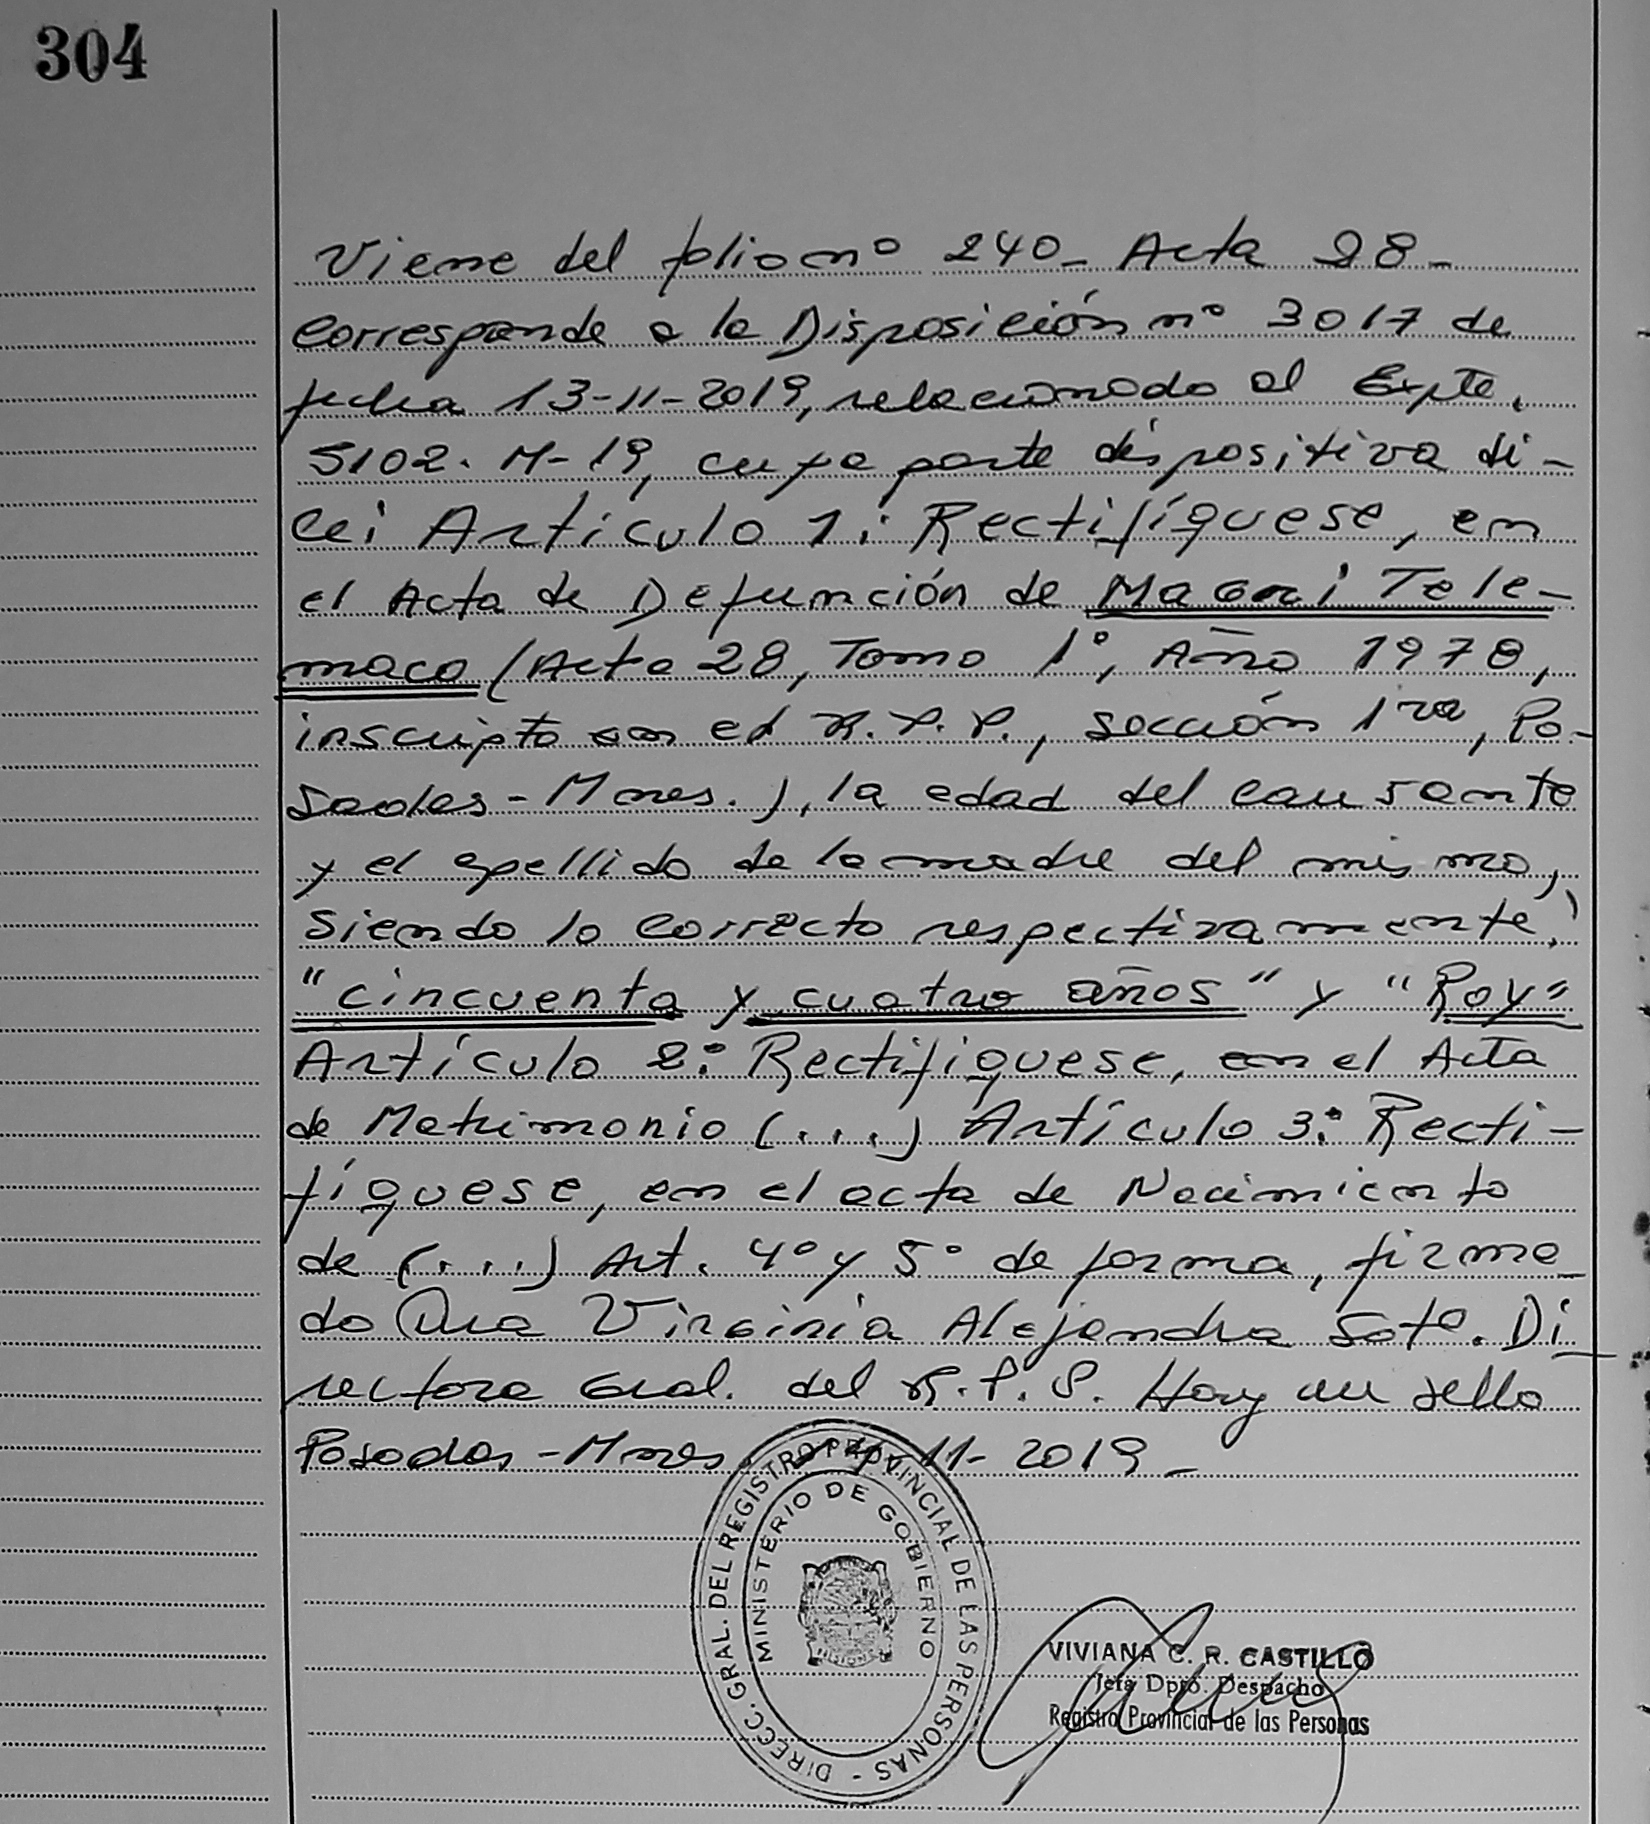 304
Viene del folio nº 240- Acta 28-
Corresponde a la Disposición nº 3017 de
fecha 13-11-2019, relacionado al Expte.
5102. M-19, cuya parte dispositiva di-
ce: Artículo 1: Rectifíquese, en
el Acta de Defunción de Magri Tele-
maco (Acta 28, Tomo 1º, Año 1978,
inscripto en el R.P.P., sección 1ra, Po-
sadas-Mnes.), la edad del causante
y el apellido de la madre del mismo,
siendo lo correcto respectivamente:
"cincuenta y cuatro años" y "Roy"
Artículo 2: Rectifiquese, en el Acta
de Matrimonio (...) Artículo 3: Recti-
fíquese, en el acta de Nacimiento
de (....) Art. 4º y 5º de forma, firma-
do Dra Virginia Alejandra Soto. Di-
rectora Gral. del R.P.P. Hay un sello
Posadas-Mnes 11-2019-
DIRECC. GRAL. DEL REGISTRO PROVINCIAL DE LAS PERSONAS -
MINISTERIO DE GOBIERNO
VIVIANA C. R. CASTILLO
Jefa Dpto. Despacho
Registro Provincial de las Personas